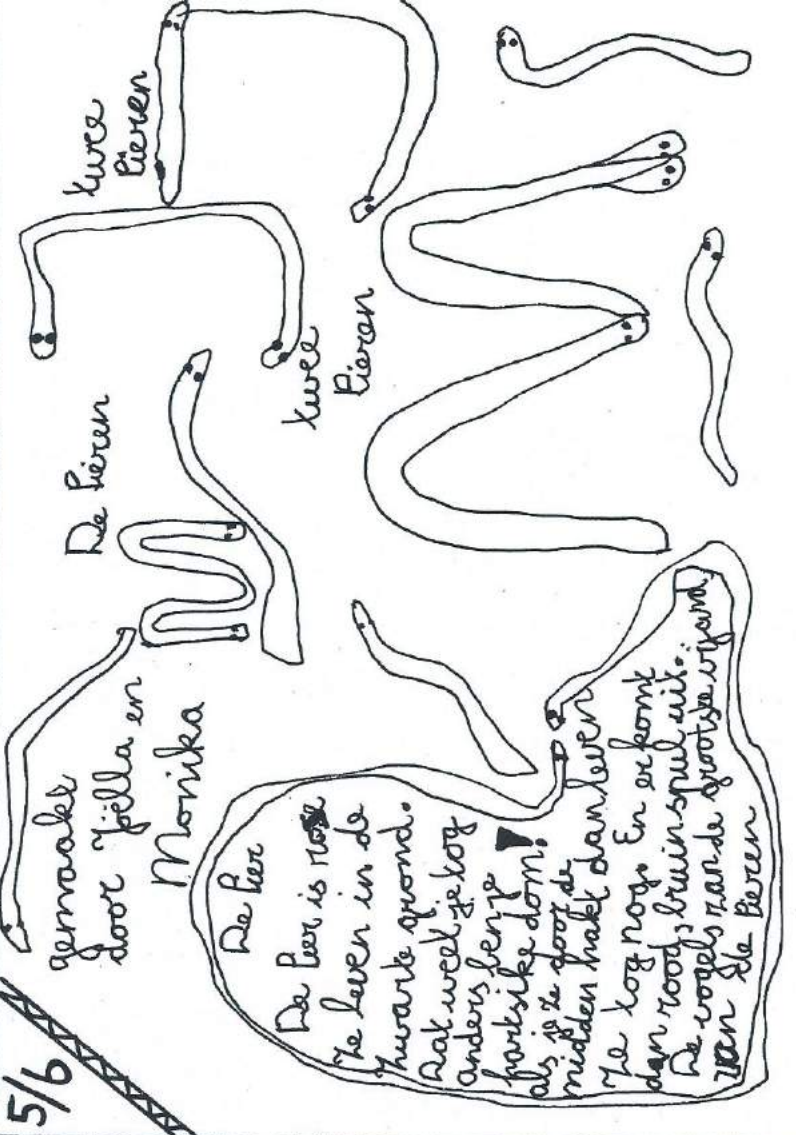 5/6
gemaakt
door Joëlla en
Monika
De Piëren
twee
Pieren
twee
Pieren
De Pier
De Pier is rose
Ze leven in de
zwarte grond.
Dat weet je tog
anders ben je
hartsike dom!
als je ze door de
midden hakt dan leven
Ze tog nog. En er komt
dan rood, bruin spul uit.
De vogels zan de grootse vyand
van de Pieren